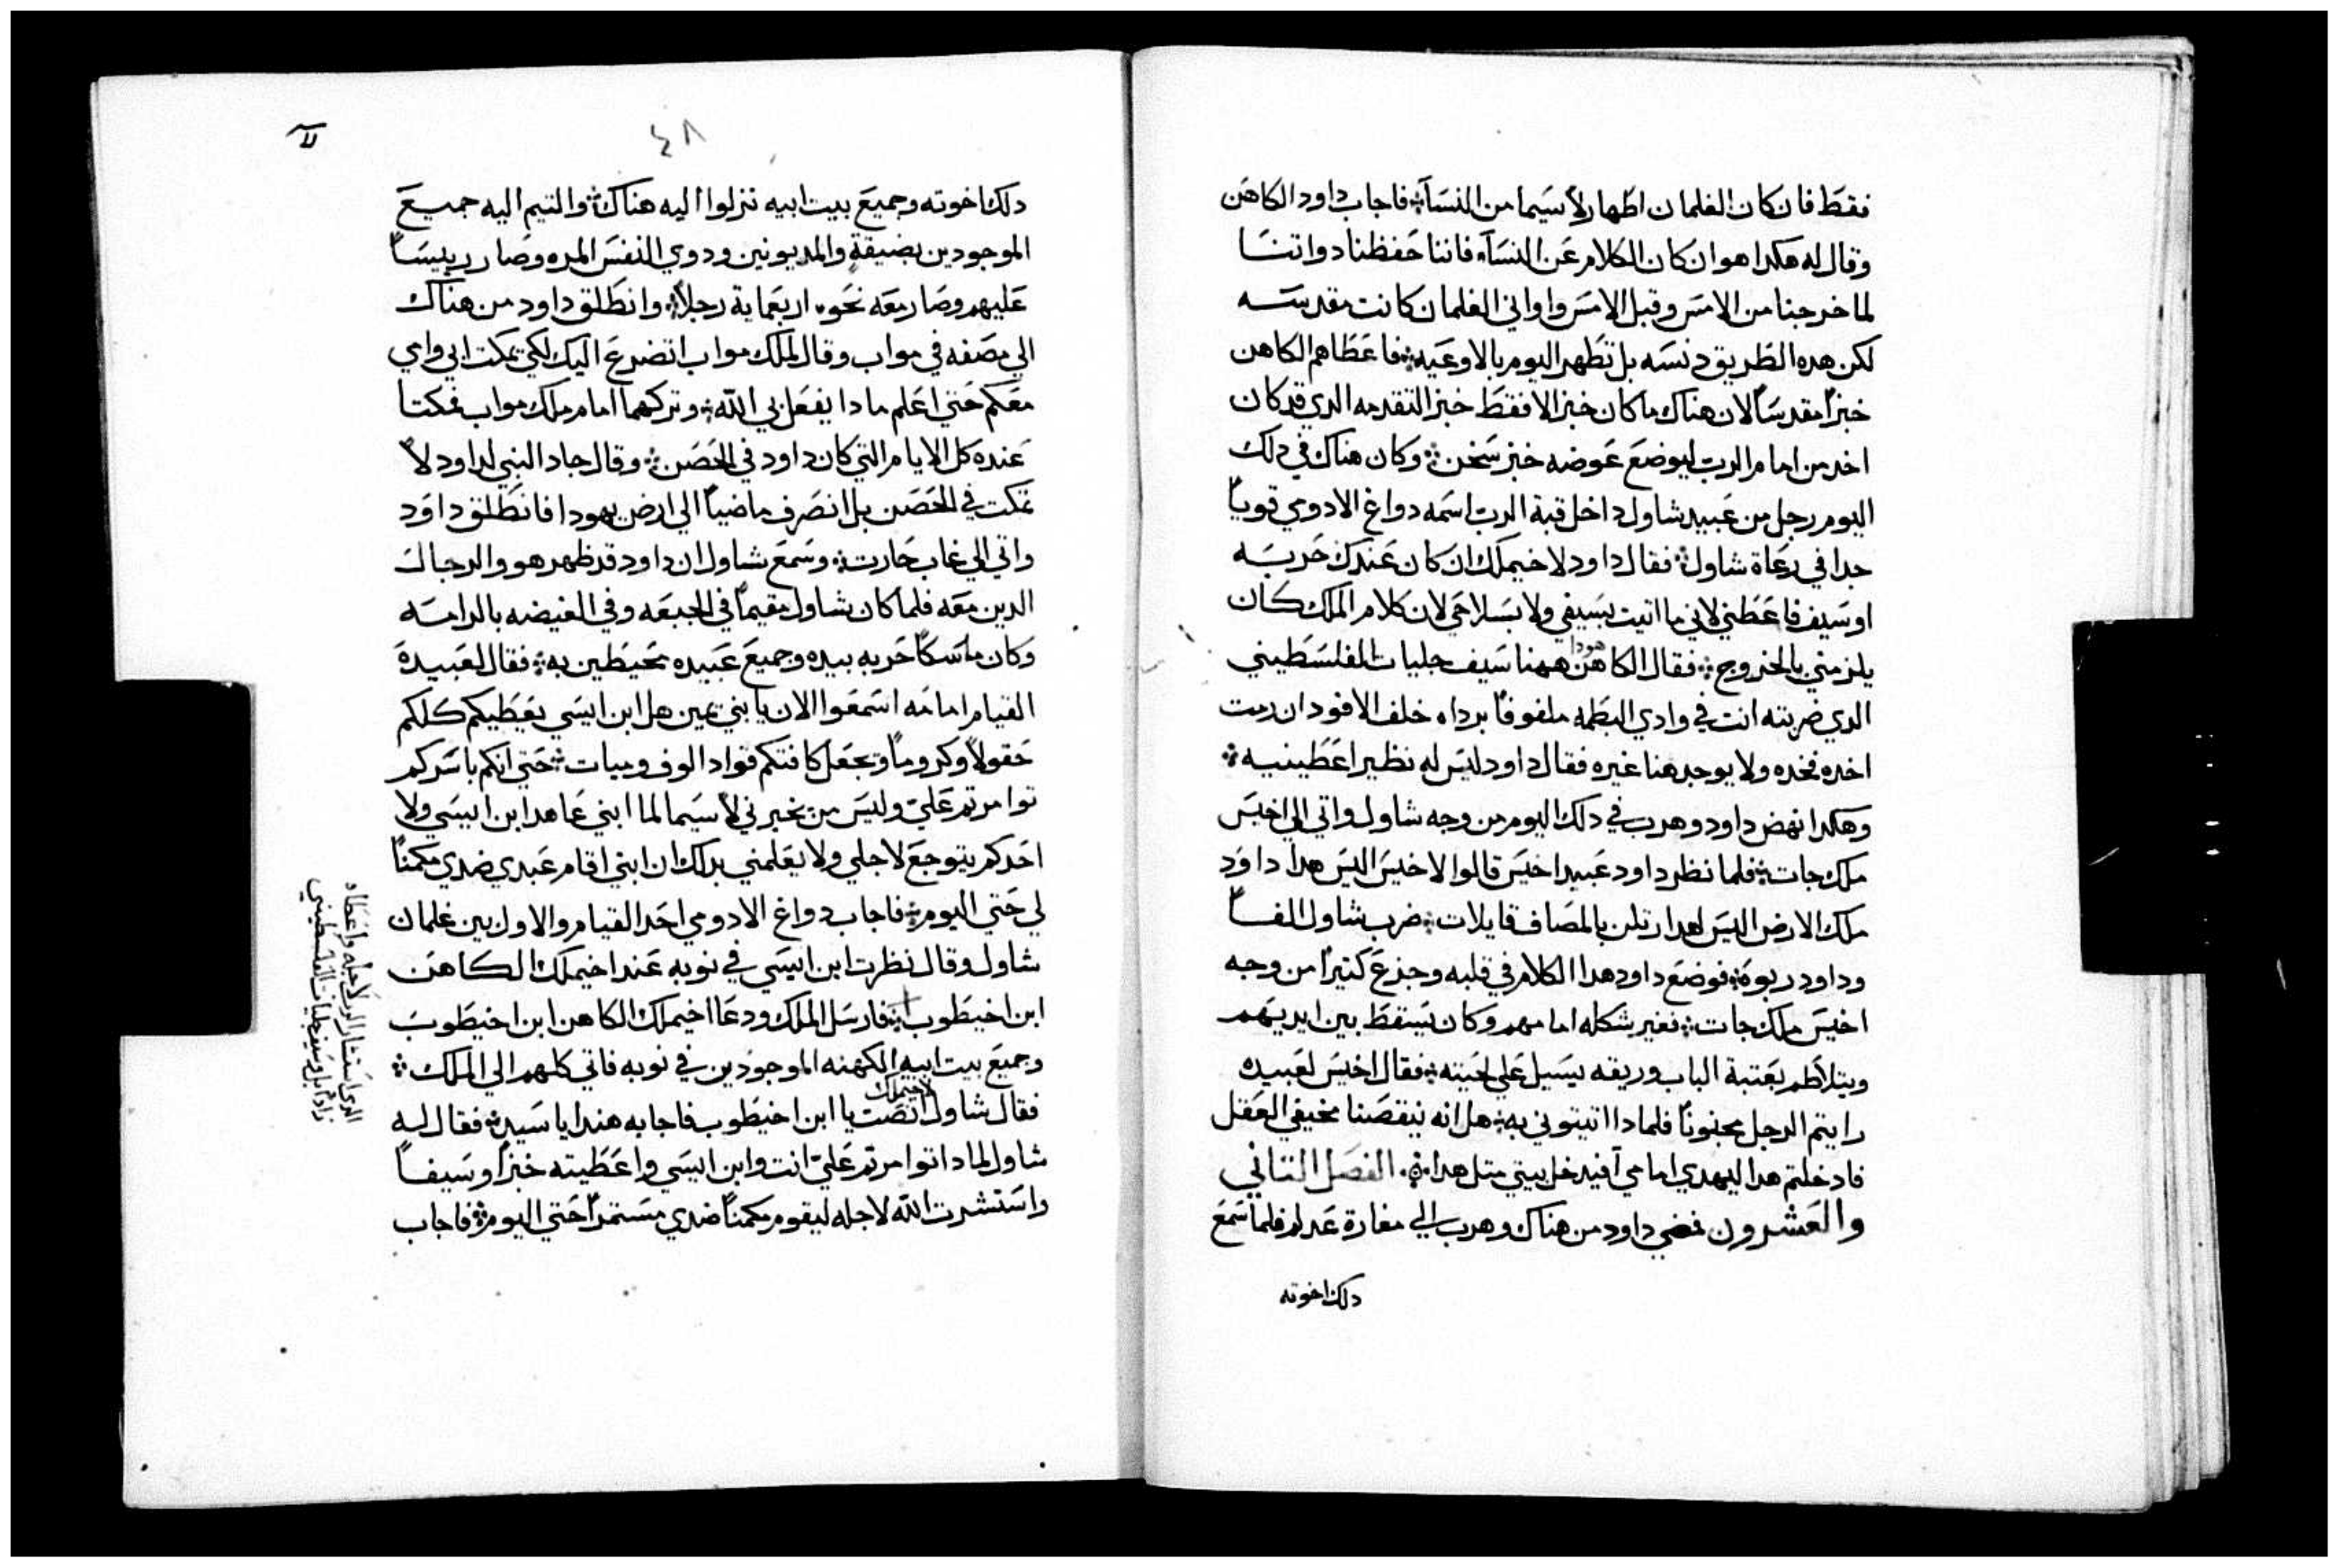 فقط فان كان الغلمان اطهار لا سيما من النسآ ۞ فاجاب داود الكاهن
وقال له هكدا هو ان كان الكلام عن النسآ فاننا حفظنا دواتنا
لما خرجنا من الامس وقبل الامس واواني الغلمان كانت مقدسه
لكن هده الطريق دنسه بل تطهر اليوم بالاوعيه ۞ فاعطاهم الكاهن
خبزاً مقدساً لان هناك ما كان خبز الا فقط خبز التقدمه الدي قد كان
اخد من امام الرب ليوضع عوضه خبز سخن ۞ وكان هناك في دلك
اليوم رجل من عبيد شاول داخل قبة الرب اسمه دواغ الادومي قوياً
جدا في رعاة شاول ۞ فقال داود لاخيملك ان كان عندك حربه
او سيف فاعطني لاني ما اتيت بسيفي ولا بسلاحي لان كلام الملك كان
يلزمني بالخروج ۞ فقال الكاهن هودا ههنا سيف جليات الفلسطيني
الدي ضربته انت في وادي البطمه ملفوفاً برداه خلف الافود ان رمت
اخده فخده ولا يوجد هنا غيره فقال داود ليس له نظير اعطينيه ۞
وهكدا نهض داود وهرب في دلك اليوم من وجه شاول واتي الي اخيس
ملك جات ۞ فلما نظر داود عبيد اخيس قالوا لاخيس اليس هدا داود
ملك الارض اليس لهدا رتلن بالمصاف قايلات ۞ ضرب شاول الفاً
وداود ربوة ۞ فوضع داود هدا الكلام في قلبه وجزع كتيراً من وجه
اخيس ملك جات ۞ فغير شكله امامهم وكان يسقط بين ايديهم
ويتلاطم بعتبة الباب وريقه يسيل علي لحيته ۞ فقال اخيس لعبيده
رايتم الرجل مجنوناً فلمادا اتيتوني به ۞ هل انه ينقصنا مخيفي العقل
فادخلتم هدا ليهدي امامي آفيدخل بيتي متل هدا ۞ الفصل التاني
والعشرون فمضي داود من هناك وهرب الي مغارة عدلم فلما سمع
دلك اخوته
٤٨
دلك اخوته وجميع بيت ابيه نزلوا اليه هناك ۞ والتيم اليه جميع
الموجودين بضيقةٍ والمديونين ودوي النفس المره وصار رييساً
عليهم وصار معه نحو اربعماية رجلاً ۞ وانطلق داود من هناك
الي مصفه في مواب وقال لملك مواب اتضرع اليك لكي يمكت ابي وامي
معكم حتي اعلم مادا يفعل بي الله ۞ وتركهما امام ملك مواب فمكتا
عنده كل الايام التي كان داود في الحصن ۞ وقال جاد النبي لداود لا
تمكت في الحصن بل انصرف ماضياً الي ارض يهودا فانطلق داود
واتي الي غاب حارت ۞ وسمع شاول ان داود قد ظهر هو والرجال
الدين معه فلما كان شاول مقيماً في الجبعه وفي الغيضه بالرامه
وكان ماسكاً حربه بيده وجميع عبيده محيطين به ۞ فقال لعبيده
القيام امامه اسمعوا الان يا بني يمين هل ابن ايسي يعطيكم كلكم
حقولاً وكروماً وتجعل كافتكم قواد الوف وميات ۞ حتي انكم باسركم
توامرتم علي وليس من يخبرني لا سيما لما ابني عاهد ابن ايسي ولا
احدكم يتوجع لاجلي ولا يعلمني بدلك ان ابني اقام عبدي ضدي مكمناً
لي حتي اليوم ۞ فاجاب دواغ الادومي احد القيام والاول بين غلمان
شاول وقال نظرت ابن ايسي في نوبه عند اخيملك الكاهن
ابن اخيطوب ۞ فارسل الملك ودعا اخيملك الكاهن ابن اخيطوب
وجميع بيت ابيه الكهنه الموجودين في نوبه فاتي كلهم الي الملك ۞
فقال شاول لاخيملك انصت يا ابن اخيطوب فاجابه هندا يا سيدي ۞ فقال له
شاول لمادا توامرتم علي انت وابن ايسي واعطيته خبزاً وسيفاً
واستشرت الله لاجله ليقوم مكمناً ضدي مستمراً حتي اليوم ۞ فاجاب
الدي استشار الرب لاجله واعطاه
زاداً بل وسيف جليات الفلسطيني